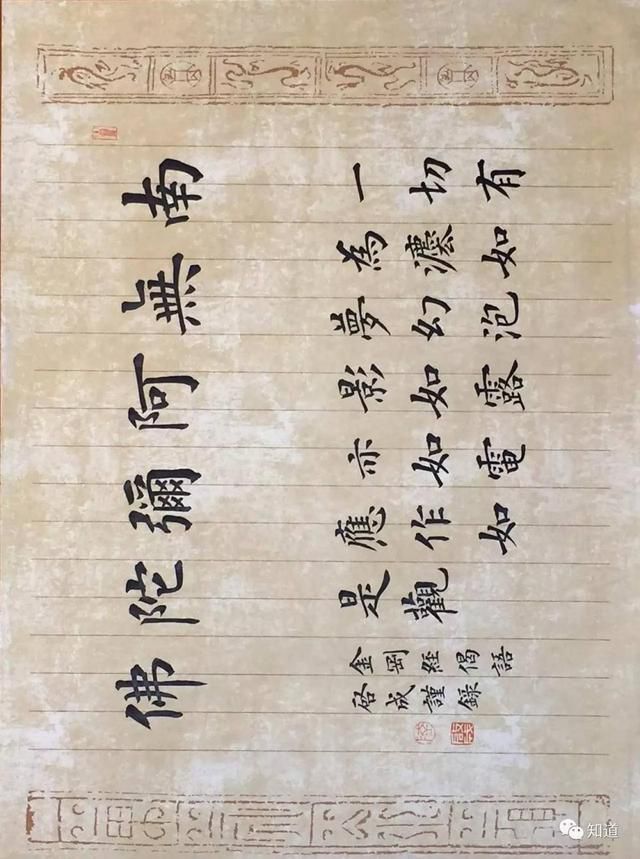 南無阿彌陀佛
一切有
為灋如
夢幻泡
影如露
亦如電
應作如
是觀
金剛經偈語
启成謹錄
知道